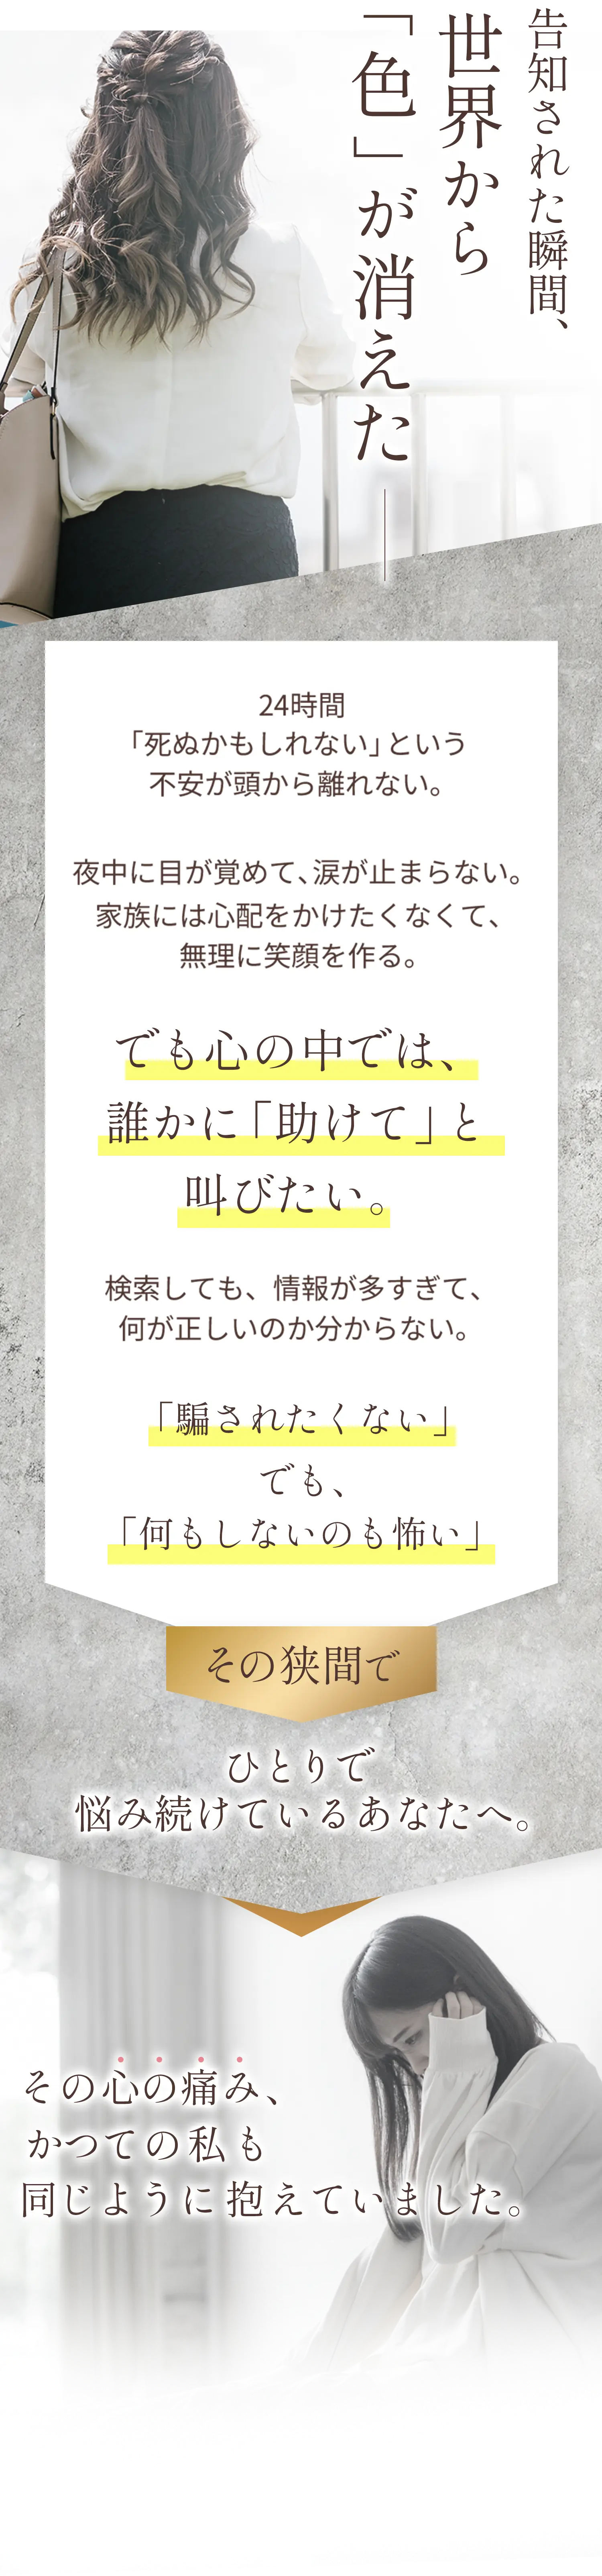 告知された瞬間、
世界から
「色」が消えた
24時間
「死ぬかもしれない」という
不安が頭から離れない。
夜中に目が覚めて、涙が止まらない。
家族には心配をかけたくなくて、
無理に笑顔を作る。
でも心の中では、
誰かに「助けて」と
叫びたい。
検索しても、情報が多すぎて、
何が正しいのか分からない。
「騙されたくない」
でも、
「何もしないのも怖い」
その狭間で
ひとりで
悩み続けているあなたへ。
その心の痛み、
かつての私も
同じように抱えていました。